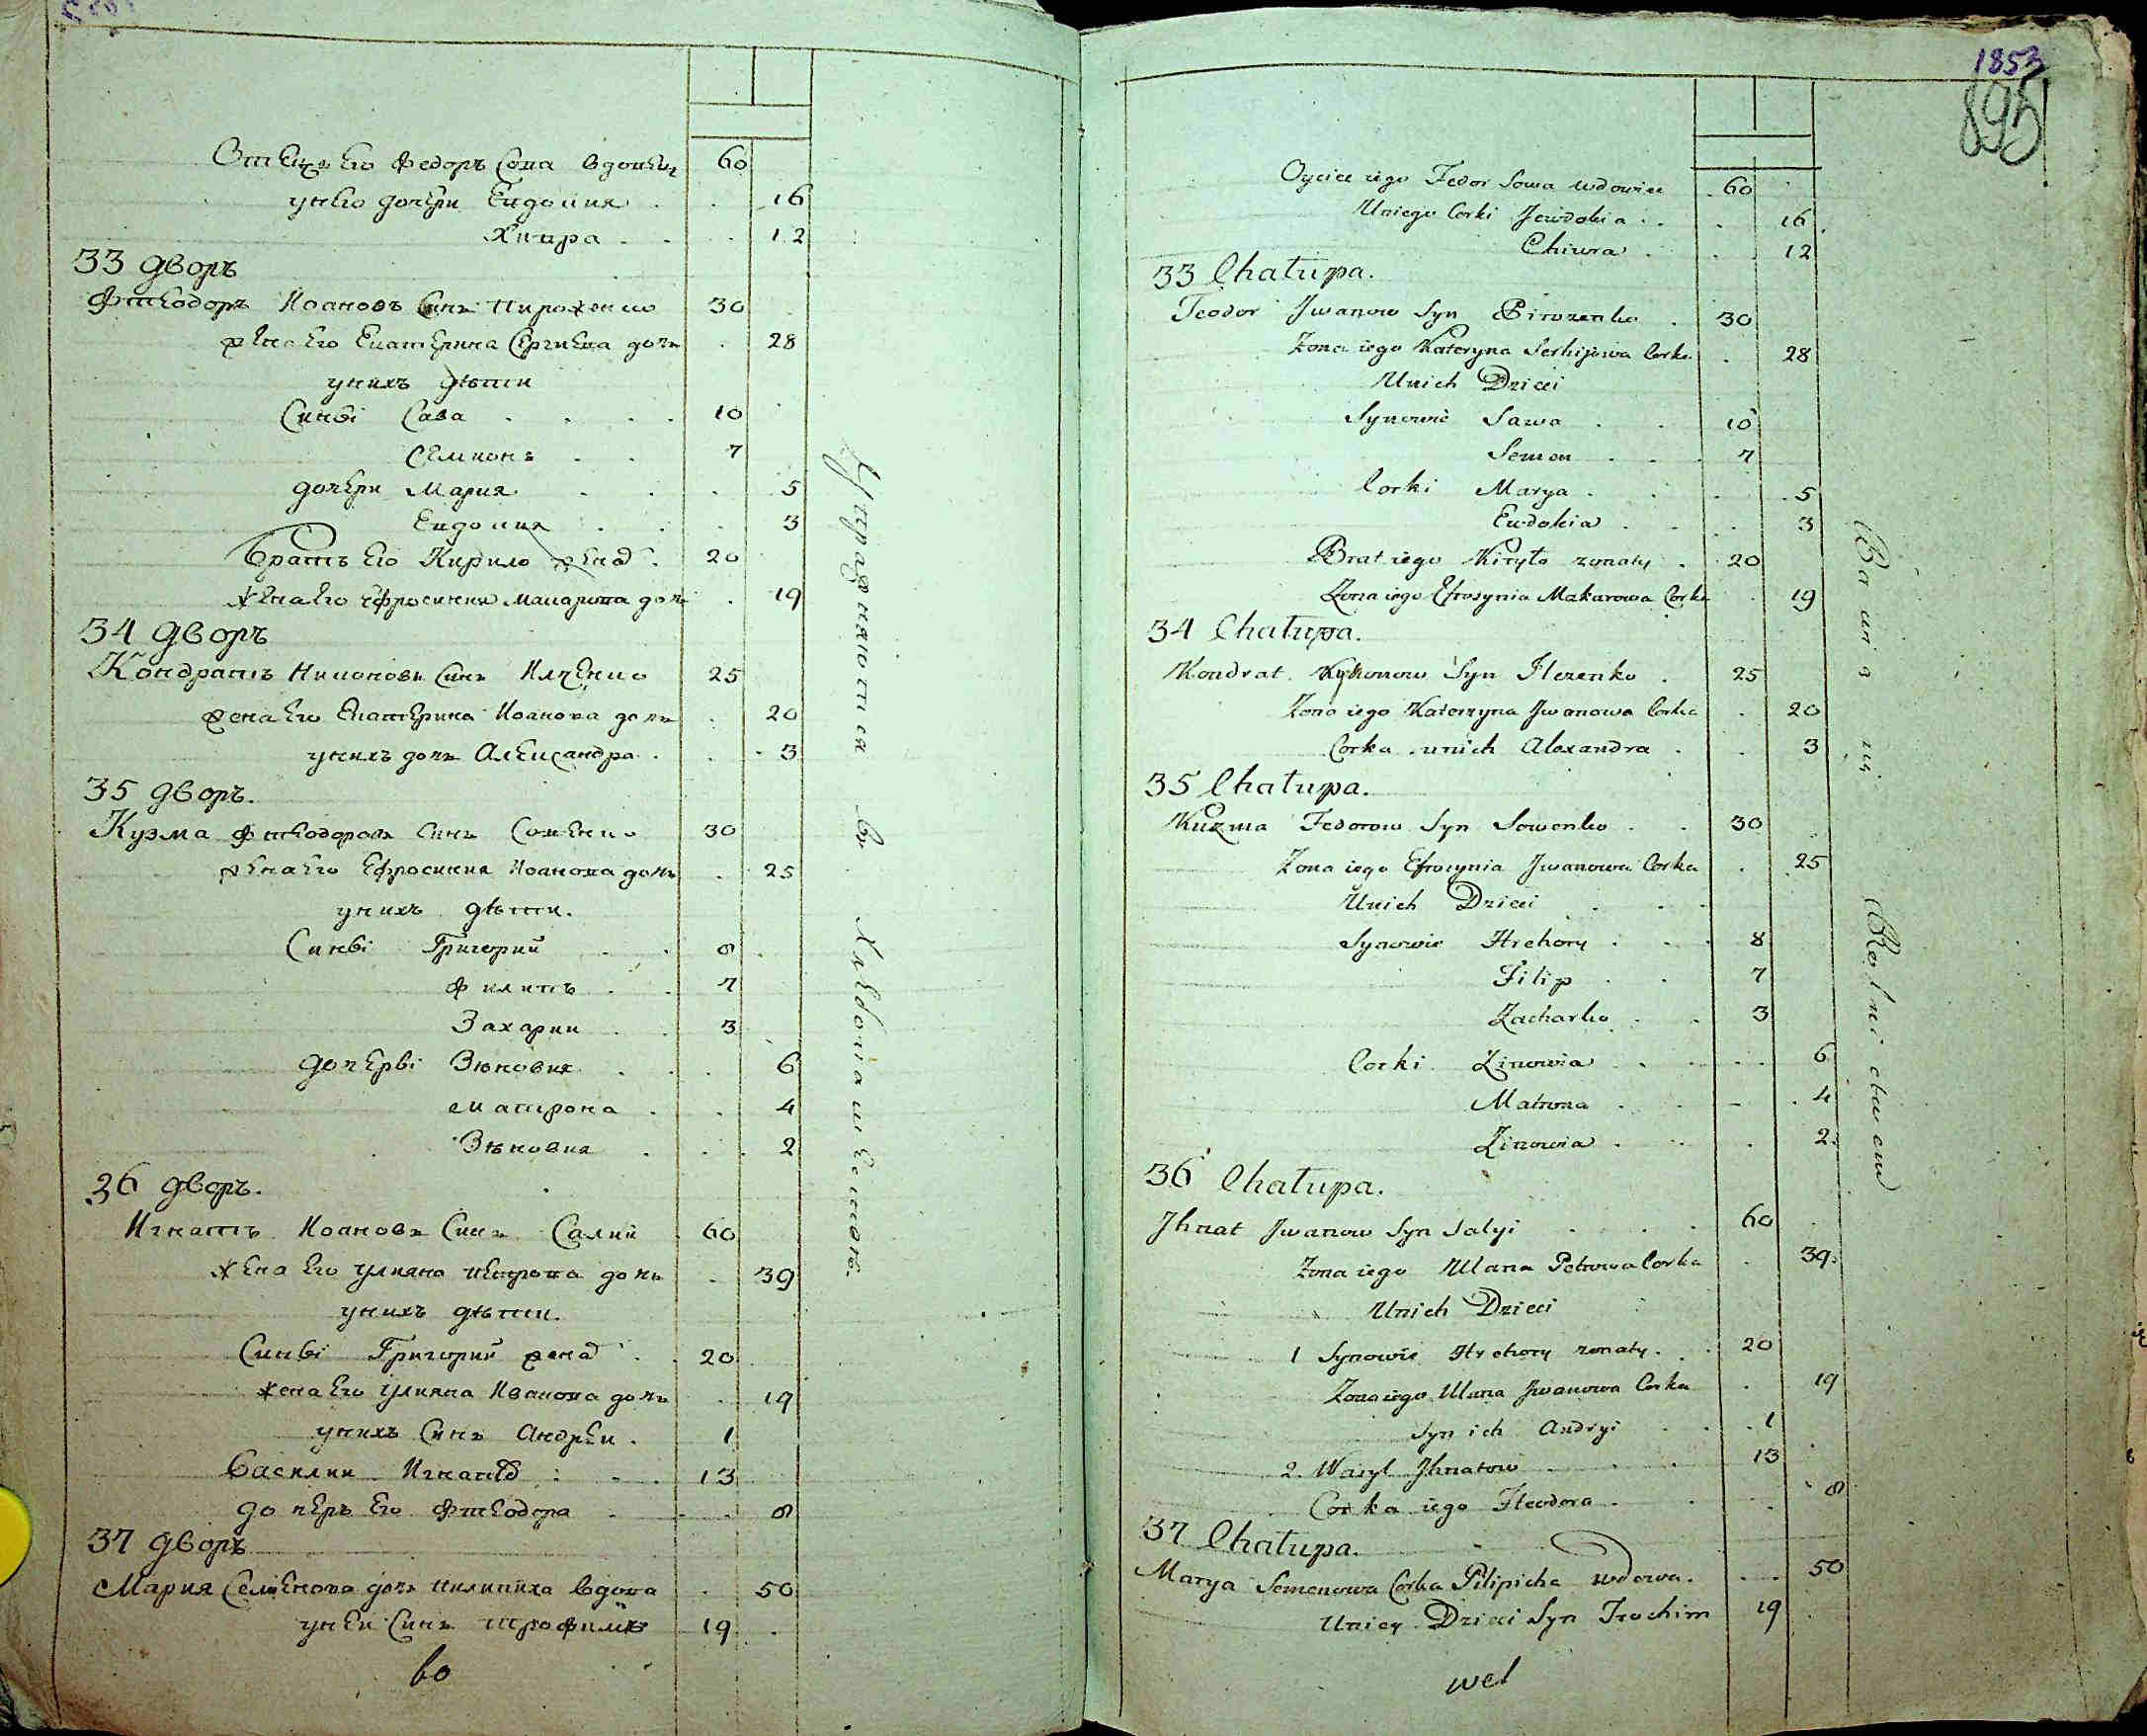 Отецъ Его Федоръ Сова вдовец 60
унего дочери Евдокия 16
Хивра 12
33 дворъ
Фтеодоръ Иоановъ Синъ Пироженко 30
жена Его Екатерина Сергиева дочь 28
унихъ дѣти
Синві Сава 10
Семионъ 7
дочери Мария 5
Евдокия 3
братъ Его Кирило женат 20
жена Его Ефросиния Макарова дочь 19
34 дворъ
Кондратъ Никоновъ Синъ Илченко 25
жена Его Екатерина Иоанова дочь 20
унихъ дочь Александра 3
35 дворъ.
Кузма Фтеодоровъ Синъ Совенко 30
жена Его Ефросиния Иоанова дочь 25
унихъ дѣти.
Синві Григорий 8
Филипъ 7
Захарии 3
дочерві Зѣновия 6
Матрона 4
Зѣновия 2
36 дворъ.
Игнатъ Иоановъ Синъ Салий 60
жена Его Улияна Петрова дочь 39
унихъ дѣти.
Синві Григорий женат 20
жена Его Улияна Иванова дочь 19
унихъ Синъ Андреи 1
Василии Игнатов 13
дочеръ Его Фтеодора 8
37 дворъ
Мария Семенова дочь Пилипиха вдова 50
унеи Синъ Трофимъ 19
во
Упражняются въ Хлебопашестве.
1853
895
Oyciec iego Fedor Sowa wdowiec 60
Uniego Corki Jewdokia 16
Chiwra 12
33 Chałupa.
Teodor Jwanow Syn Pirozenko 30
Zona iego Kateryna Serhijowa Corka 28
Unich Dzieci
Synowie Sawa 10
Semon 7
Corki Marya 5
Ewdokia 3
Brat iego Kiryło zonaty 20
Zona iego Efrosynia Makarowa Corka 19
34 Chałupa.
Kondrat Nykonow Syn Ilczenko 25
Zona iego Katerzyna Jwanowa Corka 20
Corka unich Alexandra 3
35 Chałupa.
Kuzma Fedorow Syn Sowenko 30
Zona iego Efrosynia Jwanowa Corka 25
Unich Dzieci
Synowie Hrehory 8
Filip 7
Zacharko 3
Corki Zinowia 6
Matrona 4
Zinowia 2
36 Chałupa.
Jhnat Jwanow Syn Salyi 60
Zona iego Ulana Petrowa Corka 39
Unich Dzieci
1 Synowie Hrehory zonaty 20
Zona iego Ulana Jwanowa Corka 19
Syn ich Andryi 1
2. Wasyl Jhnatow 13
Corka iego Fteodora 8
37 Chałupa.
Marya Semenowa Corka Pilipicha wdowa 50
Unicy Dzieci Syn Trochim 19
wel
Bawią się Rolnictwem